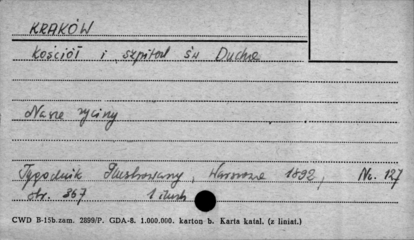 KRAKÓW
kościół i szpital św Ducha
Nasze ryciny
Tygodnik Ilustrowany, Warszawa 1892, Nr. 127
str. 367 1 ilustr
CWD B-15b. zam. 2899/P. GDA-8. 1.000.000. karton b. Karta katal. (z liniat.)